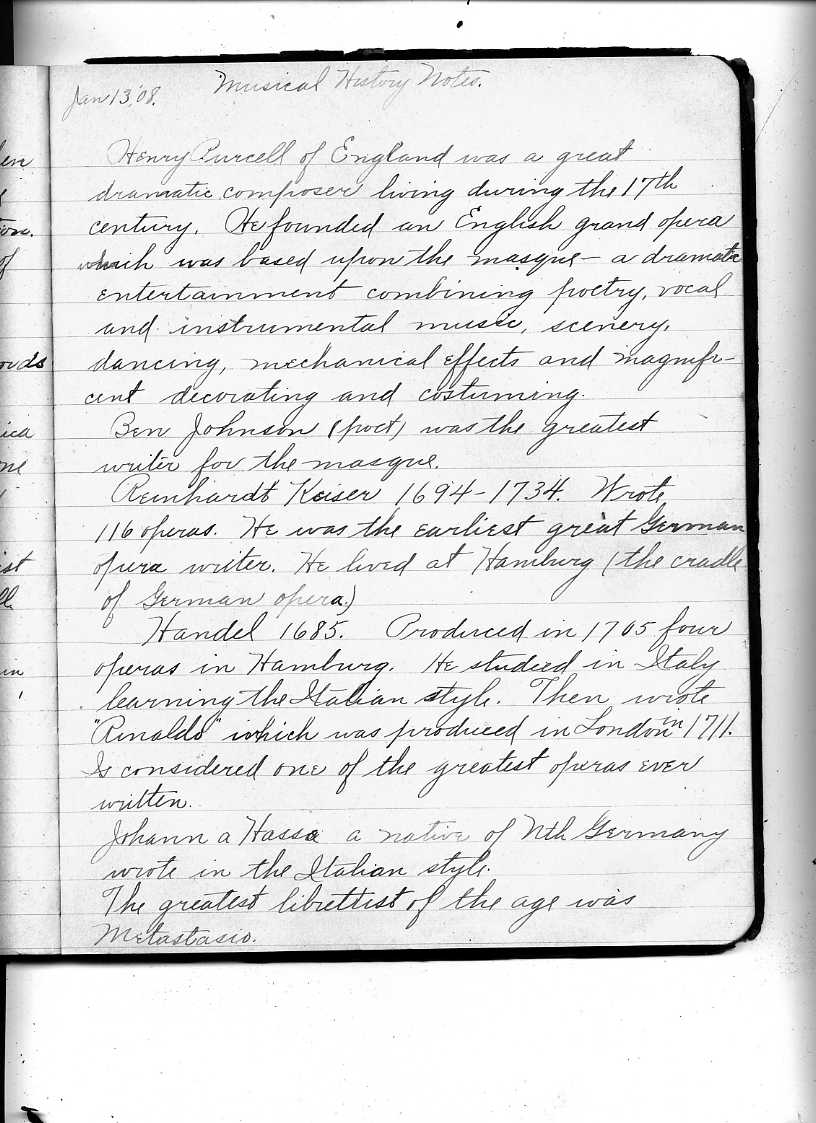 Jan 13, '08. Musical History Notes.
Henry Purcell of England was a great
dramatic composer living during the 17th
century. He founded an English grand opera
which was based upon the masque — a dramatic
entertainment combining poetry, vocal
and instrumental music, scenery,
dancing, mechanical effects and magnifi-
cent decorating and costuming.
Ben Johnson (poet) was the greatest
writer for the masque.
Reinhardt Keiser 1694-1734. Wrote
116 operas. He was the earliest great German
opera writer. He lived at Hamburg (the cradle
of German opera.)
Handel 1685. Produced in 1705 four
operas in Hamburg. He studied in Italy
learning the Italian style. Then wrote
"Rinaldo" which was produced in London in 1711.
Is considered one of the greatest operas ever
written.
Johann a Hasse a native of Nth Germany
wrote in the Italian style.
The greatest librettist of the age was
Metastasio.